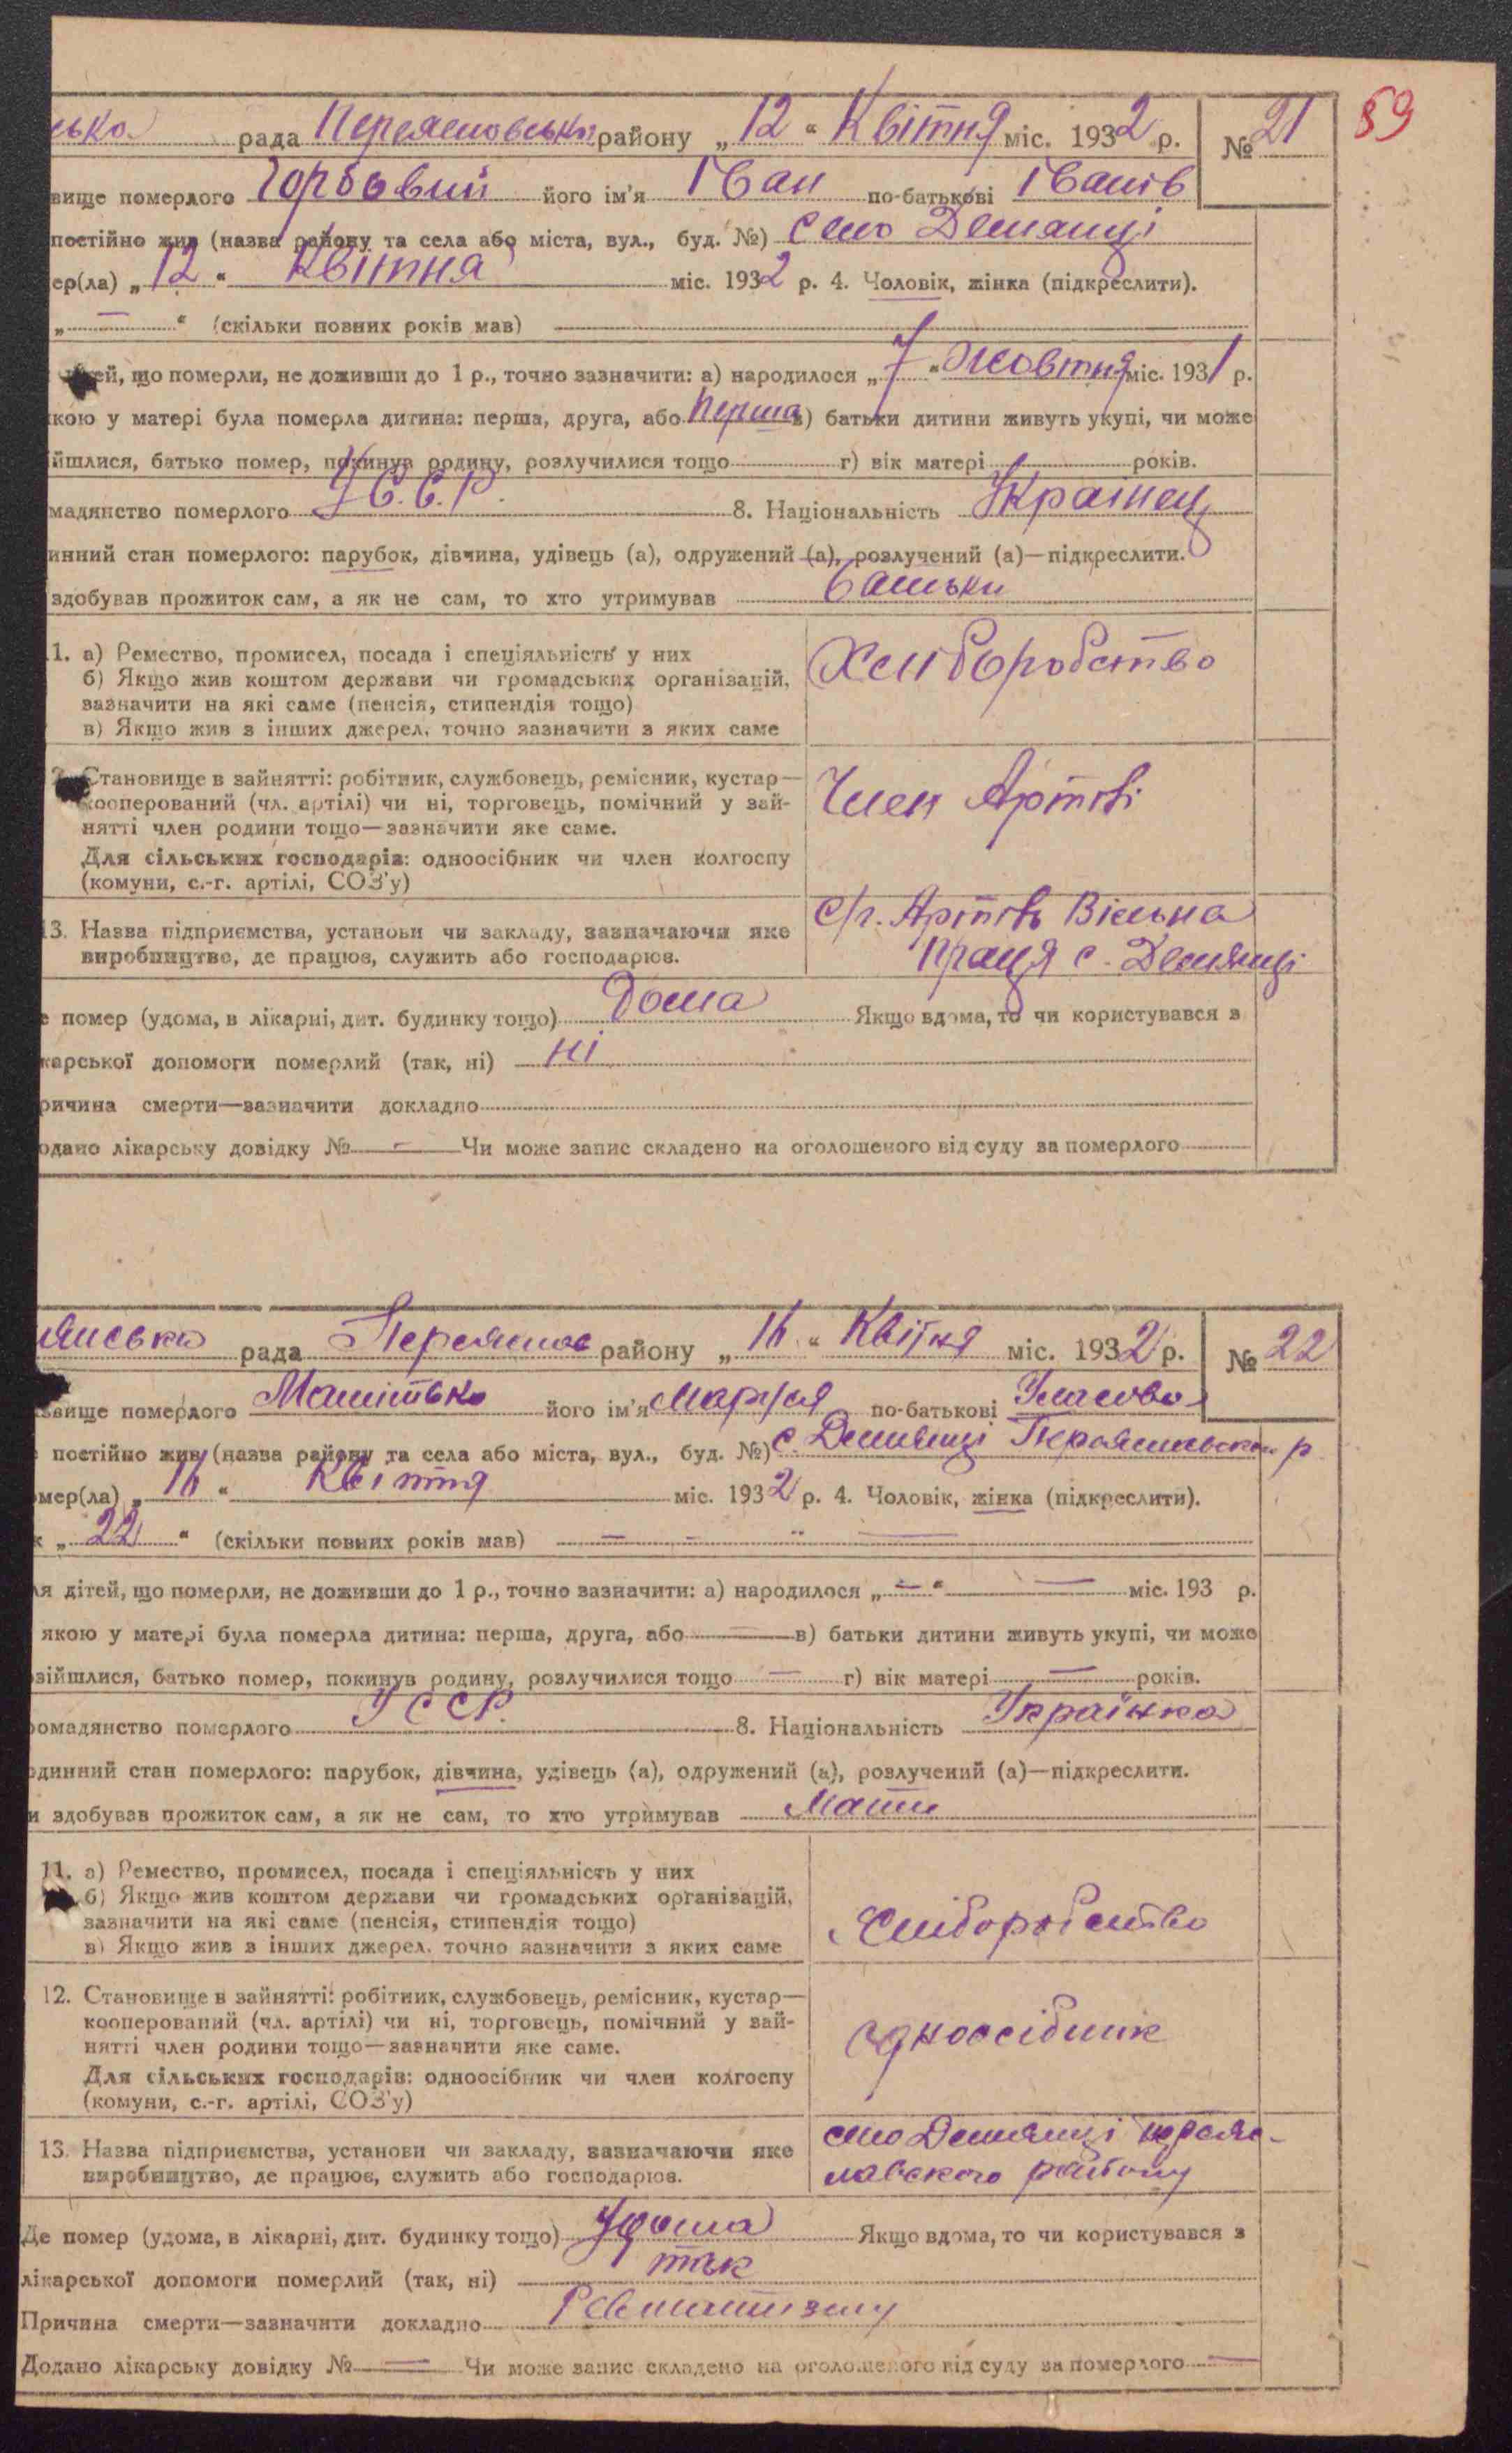 59
ська рада Переяславська району „12“ Квітня міс. 1932 р. № 21
вище померлого Горбовий його ім'я Іван по-батькові Іванів
постійно жив (назва району та села або міста, вул., буд. №) село Демянці
ер(ла) „12“ Квітня міс. 1932 р. 4. Чоловік, жінка (підкреслити).
„—“ (скільки повних років мав)
ей, що померли, не доживши до 1 р., точно зазначити: а) народилося „7“ Жовтня міс. 1931 р.
кою у матері була померла дитина: перша, друга, або перша в) батьки дитини живуть укупі, чи може
йшлися, батько помер, покинув родину, розлучилися тощо г) вік матері років.
мадянство померлого У.С.С.Р. 8. Національність Украінец
инний стан померлого: парубок, дівчина, удівець (а), одружений (а), розлучений (а)—підкреслити.
здобував прожиток сам, а як не сам, то хто утримував батьки
1. а) Ремество, промисел, посада і спеціяльність у них
б) Якщо жив коштом держави чи громадських організацій,
зазначити на які саме (пенсія, стипендія тощо)
в) Якщо жив з інших джерел, точно зазначити з яких саме
Хліборобство
Становище в зайнятті: робітник, службовець, ремісник, кустар—
кооперований (чл. артілі) чи ні, торговець, помічний у зай-
нятті член родини тощо—зазначити яке саме.
Для сільських господарів: одноосібник чи член колгоспу
(комуни, с.-г. артілі, СОЗ'у)
Член Артілі
13. Назва підприємства, установи чи закладу, зазначаючи яке
виробництво, де працює, служить або господарює.
с/г. Артіль Вільна
праця с. Демянці
е помер (удома, в лікарні, дит. будинку тощо) Дома Якщо вдома, то чи користувався з
карської допомоги померлий (так, ні) ні
ричина смерти—зазначити докладно
одано лікарську довідку № — Чи може запис складено на оголошеного від суду за померлого
янська рада Переяслав району „16“ Квітня міс. 1932 р. № 22
звище померлого його ім'я Марфа по-батькові
постійно жив (назва району та села або міста, вул., буд. №) с. Демянці Переяславськ. р
мер(ла) „16“ Квітня міс. 1932 р. 4. Чоловік, жінка (підкреслити).
к „22“ (скільки повних років мав) — — — —
ля дітей, що померли, не доживши до 1 р., точно зазначити: а) народилося „—“ — міс. 193 р.
якою у матері була померла дитина: перша, друга, або — в) батьки дитини живуть укупі, чи може
зійшлися, батько помер, покинув родину, розлучилися тощо — г) вік матері — років.
омадянство померлого УССР. 8. Національність Українка
одинний стан померлого: парубок, дівчина, удівець (а), одружений (а), розлучений (а)—підкреслити.
и здобував прожиток сам, а як не сам, то хто утримував Мати
11. а) Ремество, промисел, посада і спеціяльність у них
б) Якщо жив коштом держави чи громадських організацій,
зазначити на які саме (пенсія, стипендія тощо)
в) Якщо жив з інших джерел, точно зазначити з яких саме
Хліборобство
12. Становище в зайнятті: робітник, службовець, ремісник, кустар—
кооперований (чл. артілі) чи ні, торговець, помічний у зай-
нятті член родини тощо—зазначити яке саме.
Для сільських господарів: одноосібник чи член колгоспу
(комуни, с.-г. артілі, СОЗ'у)
одноосібник
13. Назва підприємства, установи чи закладу, зазначаючи яке
виробництво, де працює, служить або господарює.
село Демянці переяс-
лавского району
Де помер (удома, в лікарні, дит. будинку тощо) Удома Якщо вдома, то чи користувався з
лікарської допомоги померлий (так, ні) так
Причина смерти—зазначити докладно Ревматизму
Додано лікарську довідку № — Чи може запис складено на оголошеного від суду за померлого —